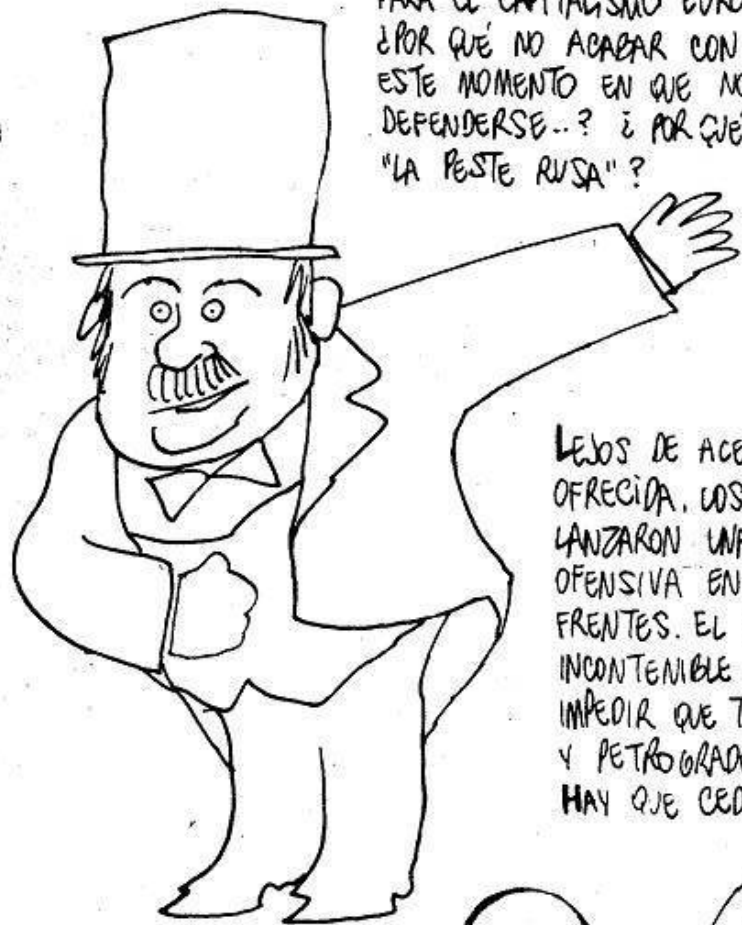 PARA EL CAPITALISMO EURO
¿POR QUÉ NO ACABAR CON
ESTE MOMENTO EN QUE NO
DEFENDERSE..? ¿POR QUÉ
"LA PESTE RUSA"?
LEJOS DE ACE
OFRECIDA. LOS
LANZARON UNA
OFENSIVA EN
FRENTES. EL
INCONTENIBLE
IMPEDIR QUE T
Y PETROGRAD
HAY QUE CED